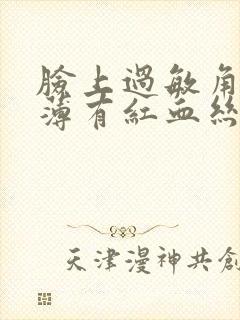 臉上過敏角
薄有紅血絲
天津漫神共創